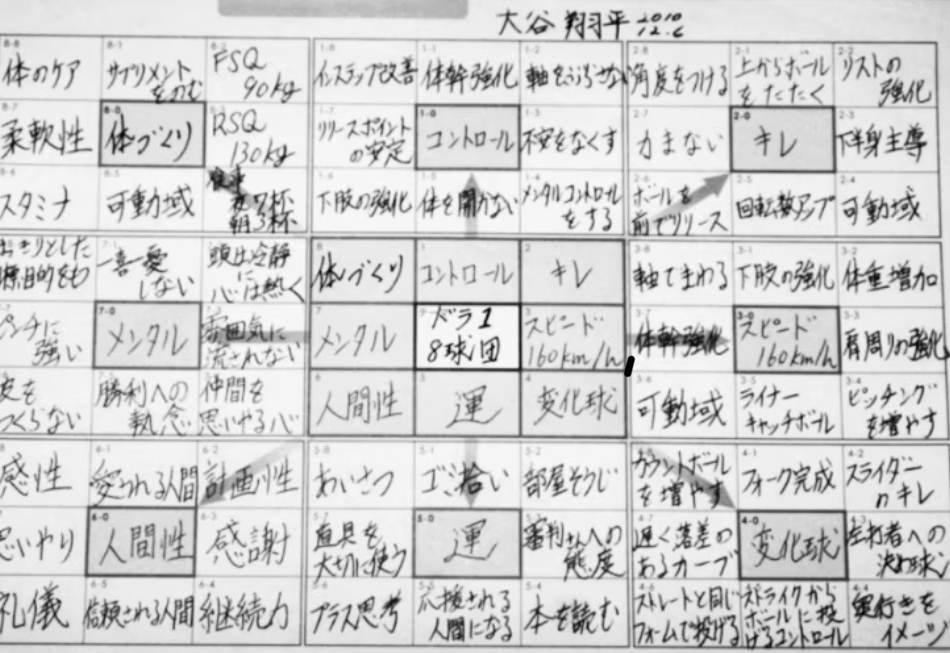 大谷 翔平 2010
12.6
8-8 8-1 8-2 1-8 1-1 1-2 2-8 2-1 2-2
体のケア
サプリメント
をのむ
FSQ
90kg
インステップ改善
体幹強化
軸をぶらさない
角度をつける
上からボール
をたたく
リストの
強化
8-7 8-0 8-3 1-7 1-0 1-3 2-7 2-0 2-3
柔軟性
体づくり
RSQ
130kg
リリースポイント
の安定
コントロール
不安をなくす
力まない
キレ
下半身主導
8-6 8-5 1-6 1-5 1-4 2-6 2-5 2-4
スタミナ
可動域
食事
夜7杯
朝3杯
下肢の強化
体を開かない
メンタルコントロール
をする
ボールを
前でリリース
回転数アップ
可動域
7-1 8 1 2 3-8 3-1 3-2
っきりとした
目的をも
一喜一憂
しない
頭は冷静
に
心は熱く
体づくり
コントロール
キレ
軸でまわる
下肢の強化
体重増加
7-0 3-7 3-0 3-3
ピンチに
強い
メンタル
雰囲気に
流されない
メンタル
ドラ1
8球団
スピード
160km/h
体幹強化
スピード
160km/h
肩周りの強化
6 5 4 3-6 3-5 3-4
波を
つくらない
勝利への
執念
仲間を
思いやる心
人間性
運
変化球
可動域
ライナー
キャッチボール
ピッチング
を増やす
6-1 6-2 5-8 5-1 5-2 4-8 4-1 4-2
感性
愛される人間
計画性
あいさつ
ゴミ拾い
部屋そうじ
カウントボール
を増やす
フォーク完成
スライダー
のキレ
6-0 6-3 5-7 5-0 5-3 4-7 4-0 4-3
思いやり
人間性
感謝
道具を
大切に使う
運
審判さんへの
態度
遅く落差の
あるカーブ
変化球
左打者への
決め球
6-5 6-4 5-6 5-5 5-4 4-6 4-5 4-4
礼儀
信頼される人間
継続力
プラス思考
応援される
人間になる
本を読む
ストレートと同じ
フォームで投げる
ストライクから
ボールに投
げるコントロール
奥行きを
イメージ